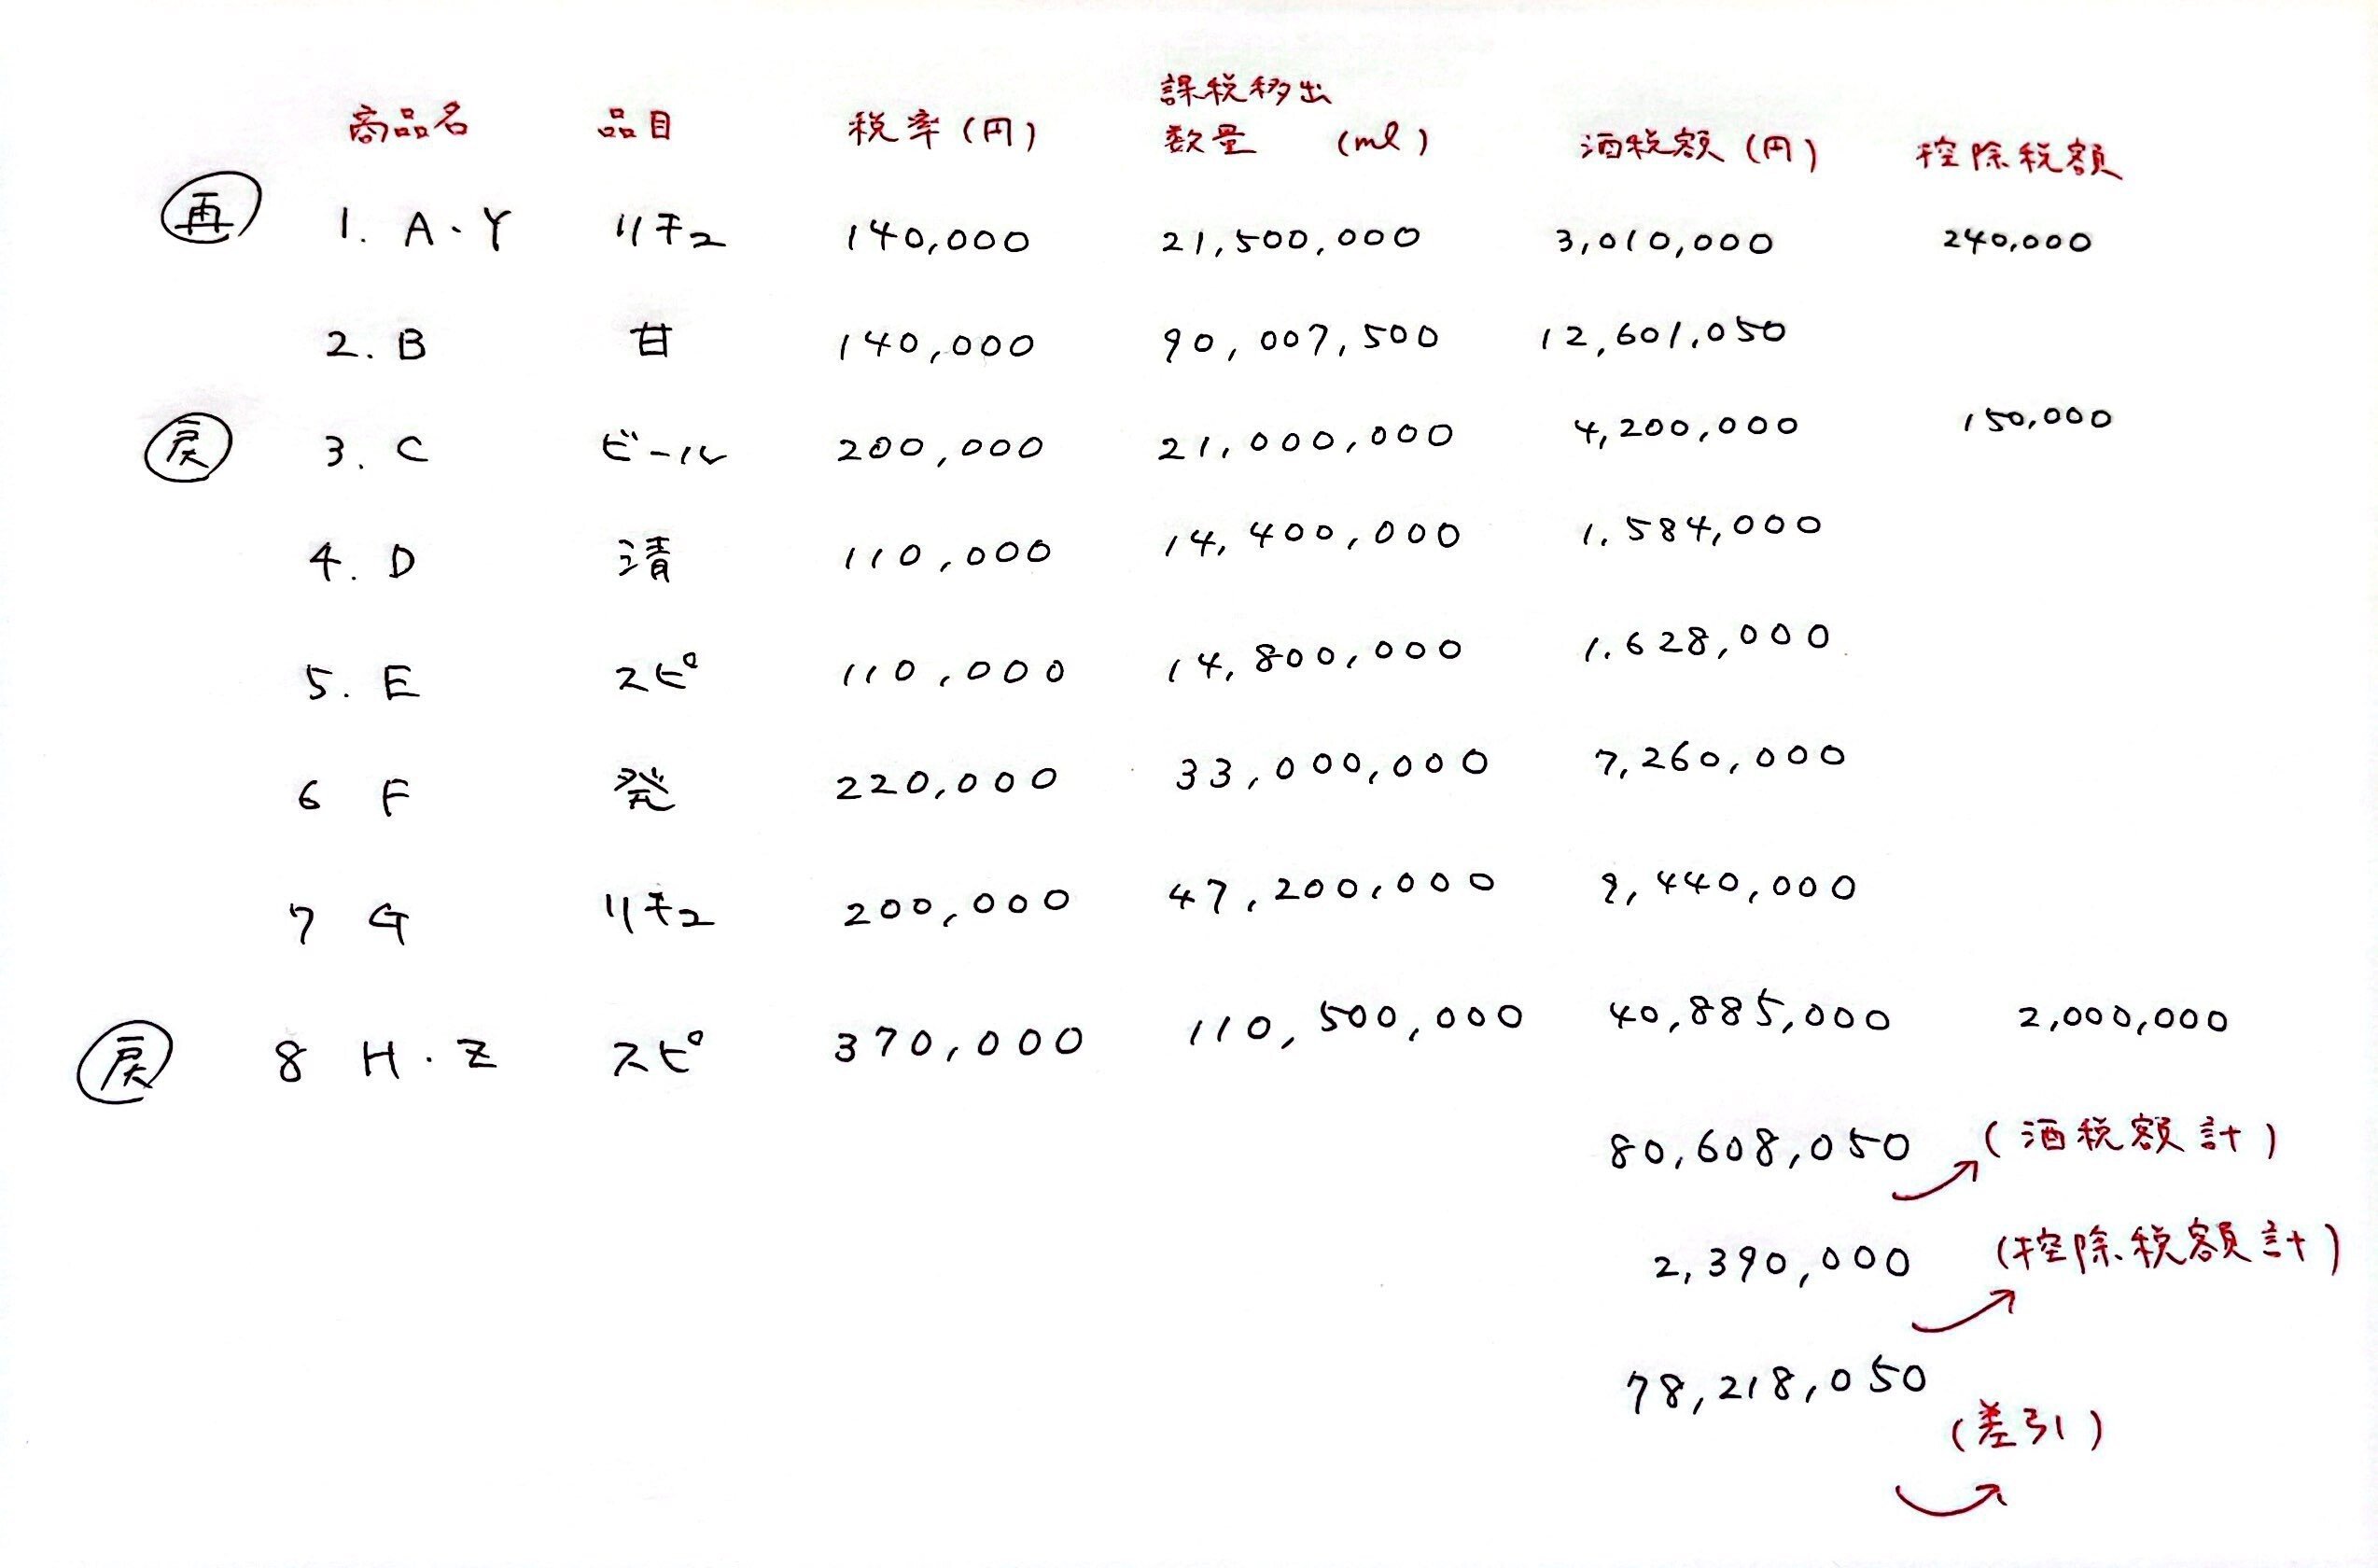 商品名 品目 税率(円) 課税移出数量 (ml) 酒税額(円) 控除税額
再 1. A・Y リキュ 140,000 21,500,000 3,010,000 240,000
2. B 甘 140,000 90,007,500 12,601,050
戻 3. C ビール 200,000 21,000,000 4,200,000 150,000
4. D 清 110,000 14,400,000 1,584,000
5. E スピ 110,000 14,800,000 1,628,000
6 F 発 220,000 33,000,000 7,260,000
7 G リキュ 200,000 47,200,000 9,440,000
戻 8 H・Z スピ 370,000 110,500,000 40,885,000 2,000,000
80,608,050 (酒税額計)
2,390,000 (控除税額計)
78,218,050 (差引)